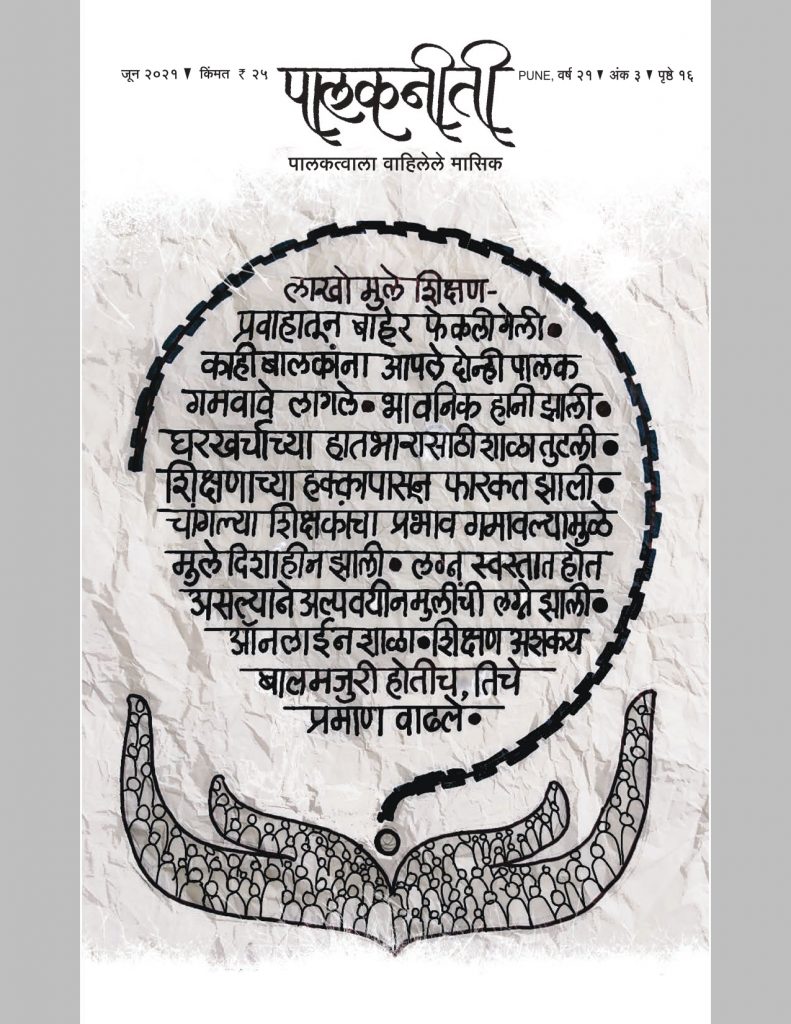 जून २०२१ ▼ किंमत ₹ २५
पालकनीती
PUNE, वर्ष २१ ▼ अंक ३ ▼ पृष्ठे १६
पालकत्वाला वाहिलेले मासिक
लाखो मुले शिक्षण-
प्रवाहातून बाहेर फेकली गेली •
काही बालकांना आपले दोन्ही पालक
गमवावे लागले • भावनिक हानी झाली •
घरखर्चाच्या हातभारासाठी शाळा तुटली •
शिक्षणाच्या हक्कापासून फारकत झाली •
चांगल्या शिक्षकांचा प्रभाव गमावल्यामुळे
मुले दिशाहीन झाली • लग्न स्वस्तात होत
असल्याने अल्पवयीन मुलींची लग्ने झाली •
ऑनलाईन शाळा • शिक्षण अशक्य
बालमजुरी होतीच, तिचे
प्रमाण वाढले •